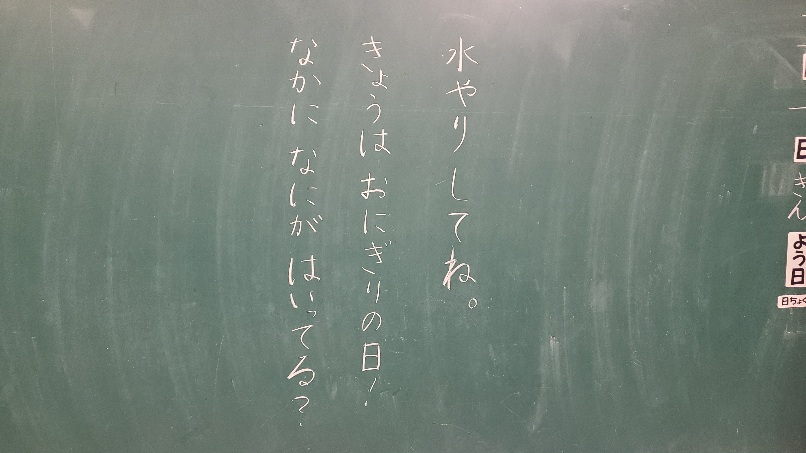 水やりしてね。
きょうは おにぎりの日!
なかに なにが はいってる?
きん
よう日
日ちょく